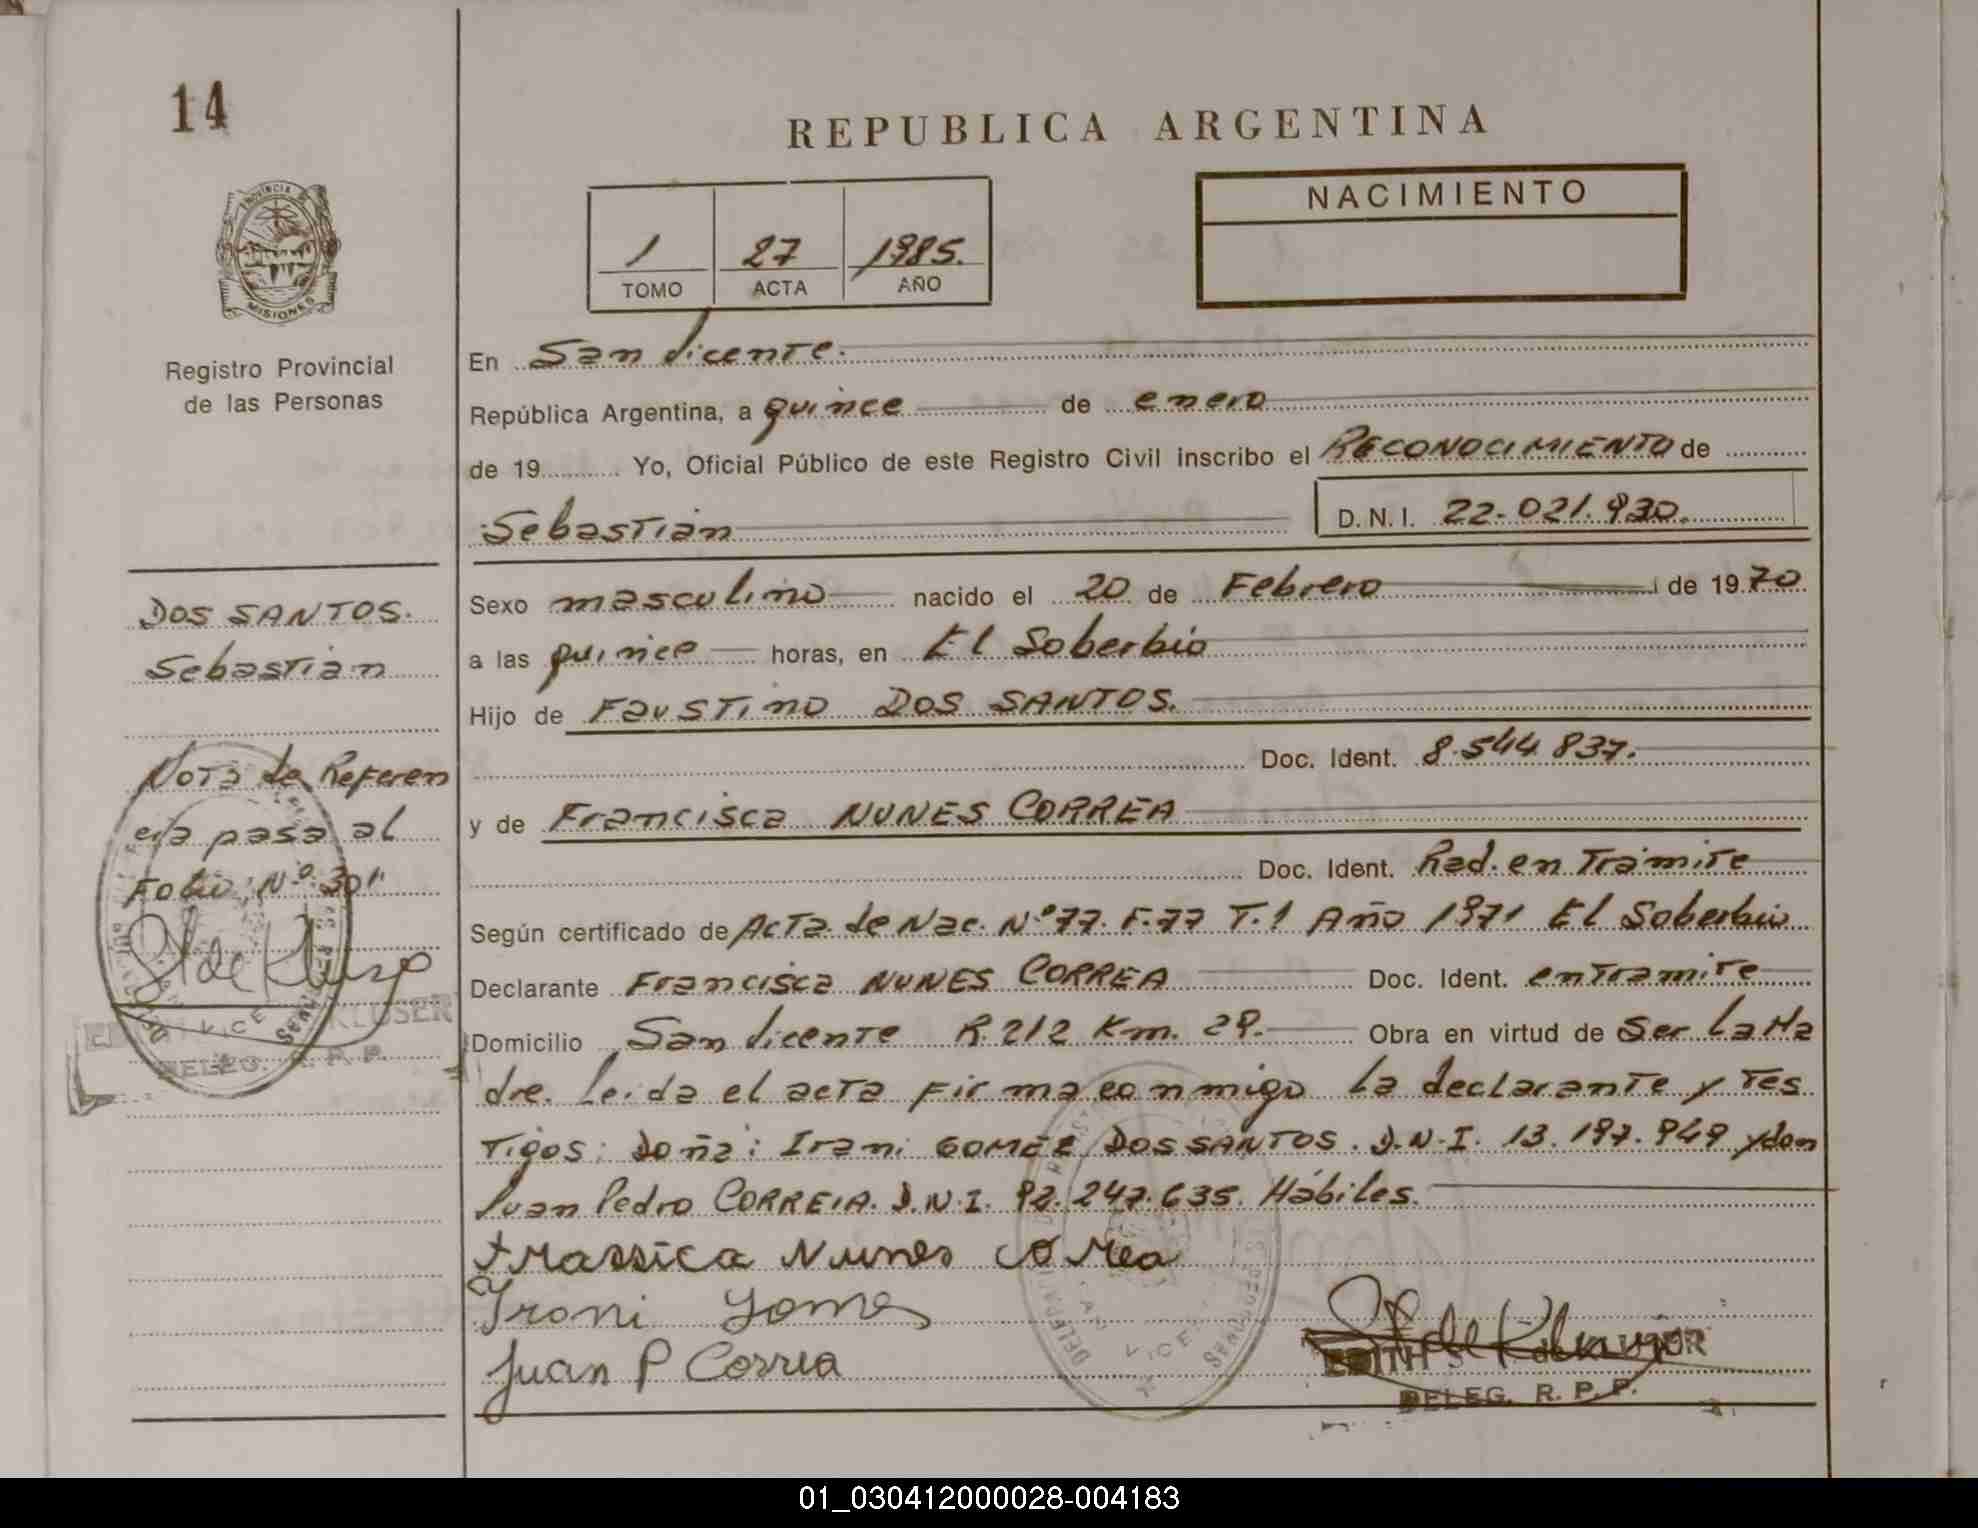 14
REPUBLICA ARGENTINA
PROVINCIA DE
MISIONES
NACIMIENTO
1 27 1985.
TOMO ACTA AÑO
Registro Provincial
de las Personas
En San Vicente.
República Argentina, a quince de enero
de 19 Yo, Oficial Público de este Registro Civil inscribo el RECONOCIMIENTO de
Sebastián D.N.I. 22.021.930.
Sexo masculino nacido el 20 de Febrero de 1970
a las quince horas, en El Soberbio
Hijo de Faustino DOS SANTOS.
Doc. Ident. 8.544.837.
y de Francisca NUNES CORREA
Doc. Ident. Rad. en Trámite
Según certificado de Acta de Nac. Nº 77. F.77 T.1 Año 1971 El Soberbio
Declarante Francisca NUNES CORREA Doc. Ident. en Tramite
Domicilio San Vicente R.212 Km. 29. Obra en virtud de Ser La Ma
dre. Leida el acta firma conmigo la declarante y Tes
Tigos: Doña: Irani GOMEZ DOS SANTOS. D.N.I. 13.197.949 y don
Juan Pedro CORREIA. D.N.I. 92.247.635. Hábiles.
Nunes Correa
Irani Gomes
Juan P Correa
DELEG. R. P. P.
DOS SANTOS.
Sebastián
Nota de Referen
cia pasa al
Folio Nº 301
KLUSER
DELEG. R. P. P.
01_030412000028-004183